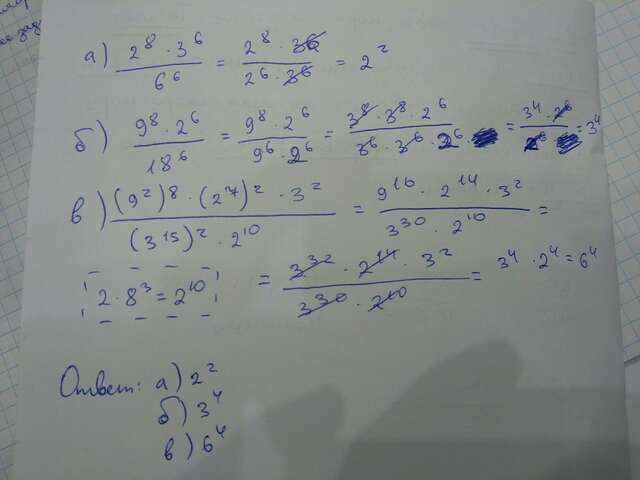 а) 2⁸ · 3⁶ / 6⁶ = 2⁸ · 3⁶ / 2⁶ · 3⁶ = 2²
б) 9⁸ · 2⁶ / 18⁶ = 9⁸ · 2⁶ / 9⁶ · 2⁶ = 3⁸ · 3⁸ · 2⁶ / 3⁶ · 3⁶ · 2⁶ = 3⁴ · 2⁶ / 2⁶ = 3⁴
в) (9²)⁸ · (2⁷)² · 3² / (3¹⁵)² · 2¹⁰ = 9¹⁶ · 2¹⁴ · 3² / 3³⁰ · 2¹⁰ =
2 · 8³ = 2¹⁰ = 3³² · 2¹⁴ · 3² / 3³⁰ · 2¹⁰ = 3⁴ · 2⁴ = 6⁴
Ответ: а) 2²
б) 3⁴
в) 6⁴